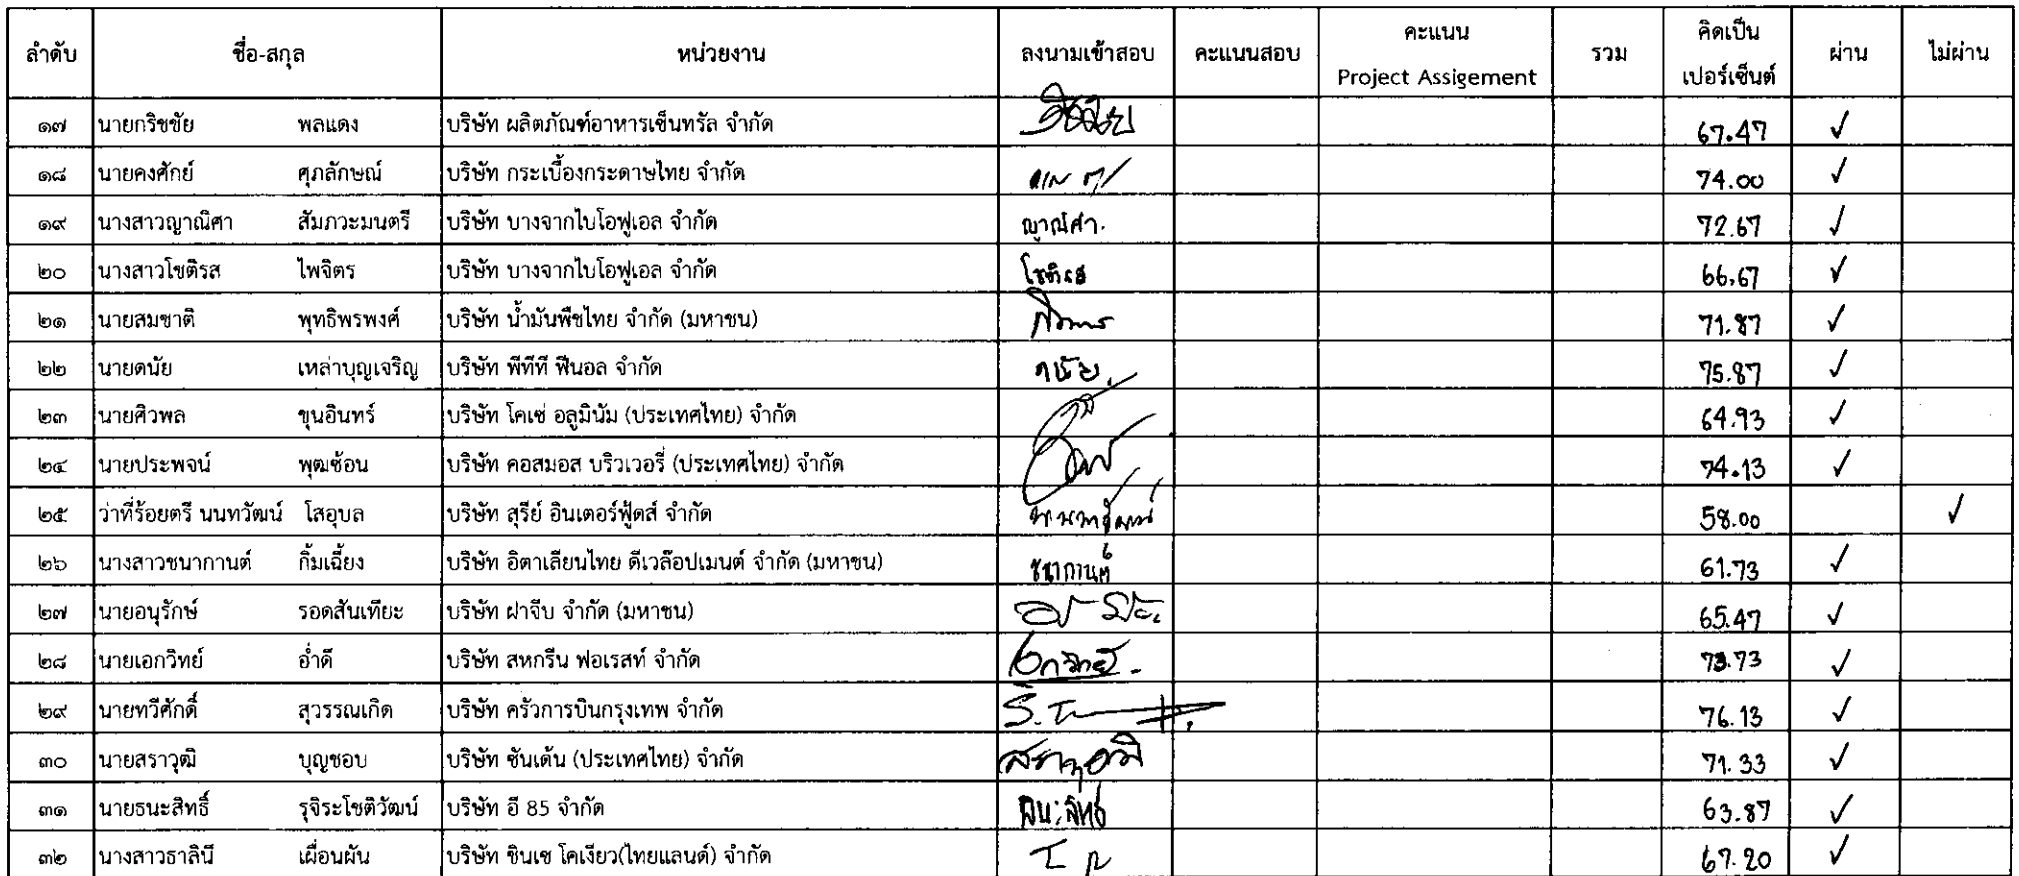 ลำดับ ชื่อ-สกุล หน่วยงาน ลงนามเข้าสอบ คะแนนสอบ คะแนน Project Assigement รวม คิดเป็น เปอร์เซ็นต์ ผ่าน ไม่ผ่าน
๑๗ นายกริชชัย พลแดง บริษัท ผลิตภัณฑ์อาหารเซ็นทรัล จำกัด 67.47 ✓
๑๘ นายคงศักย์ ศุภลักษณ์ บริษัท กระเบื้องกระดาษไทย จำกัด 74.00 ✓
๑๙ นางสาวญาณิศา สัมภวะมนตรี บริษัท บางจากไบโอฟูเอล จำกัด ญาณิศา. 72.67 ✓
๒๐ นางสาวโชติรส ไพจิตร บริษัท บางจากไบโอฟูเอล จำกัด โชติรส 66.67 ✓
๒๑ นายสมชาติ พุทธิพรพงศ์ บริษัท น้ำมันพืชไทย จำกัด (มหาชน) 71.87 ✓
๒๒ นายดนัย เหล่าบุญเจริญ บริษัท พีทีที ฟีนอล จำกัด ดนัย. 75.87 ✓
๒๓ นายศิวพล ขุนอินทร์ บริษัท โคเซ่ อลูมินัม (ประเทศไทย) จำกัด 64.93 ✓
๒๔ นายประพจน์ พุฒซ้อน บริษัท คอสมอส บริวเวอรี่ (ประเทศไทย) จำกัด 74.13 ✓
๒๕ ว่าที่ร้อยตรี นนทวัฒน์ โสอุบล บริษัท สุรีย์ อินเตอร์ฟู้ดส์ จำกัด 58.00 ✓
๒๖ นางสาวชนากานต์ กิ้มเฉี้ยง บริษัท อิตาเลียนไทย ดีเวล๊อปเมนต์ จำกัด (มหาชน) ชนากานต์ 61.73 ✓
๒๗ นายอนุรักษ์ รอดสันเทียะ บริษัท ฝาจีบ จำกัด (มหาชน) 65.47 ✓
๒๘ นายเอกวิทย์ อ่ำดี บริษัท สหกรีน ฟอเรสท์ จำกัด เอกวิทย์. 73.73 ✓
๒๙ นายทวีศักดิ์ สุวรรณเกิด บริษัท ครัวการบินกรุงเทพ จำกัด 76.13 ✓
๓๐ นายสราวุฒิ บุญชอบ บริษัท ซันเด้น (ประเทศไทย) จำกัด 71.33 ✓
๓๑ นายธนะสิทธิ์ รุจิระโชติวัฒน์ บริษัท อี 85 จำกัด 63.87 ✓
๓๒ นางสาวธาลินี เผื่อนผัน บริษัท ชินเซ โคเงียว(ไทยแลนด์) จำกัด 67.20 ✓